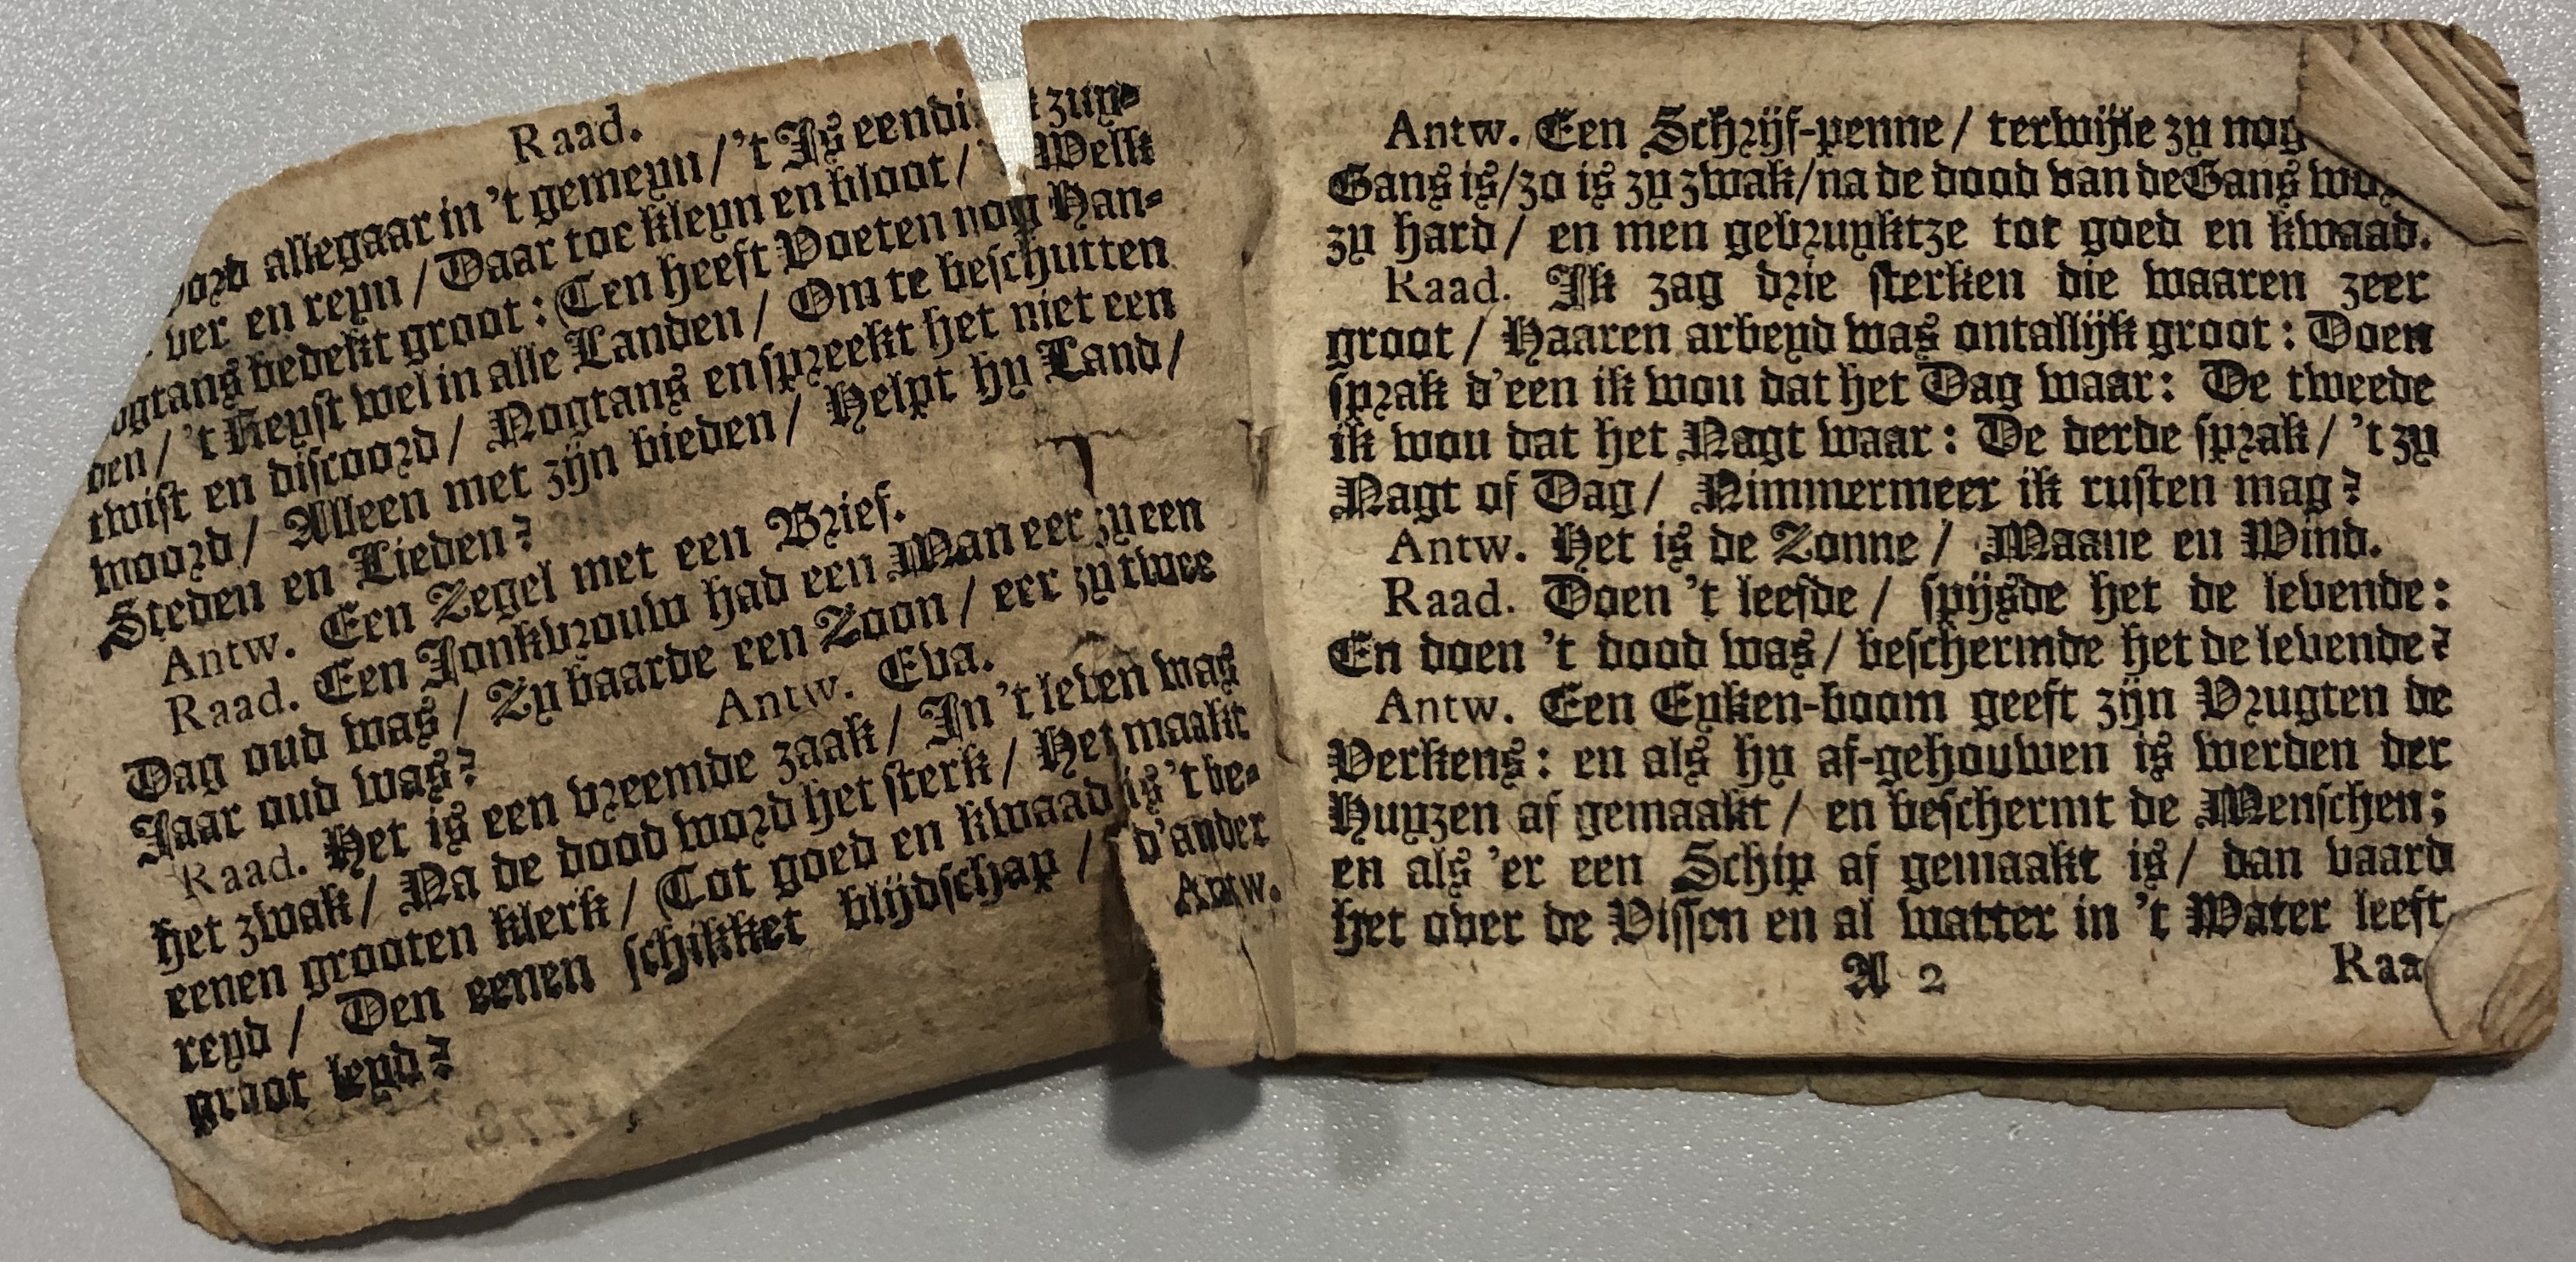 Raad.
allegaar in 't gemeyn / 't Is een zuy-
ver en reyn / Daar toe kleyn en bloot / Welk
bedekt groot: Een heeft Voeten nog Han-
den / 't Reyst wel in alle Landen / Om te beschutten
twist en discoord / Nogtans en spreekt het niet een
woord / Alleen met zijn bieden / Helpt hy Land /
Steden en Lieden?
Antw. Een Zegel met een Brief.
Raad. Een Jonkvrouw had een Man eer zy een
Dag oud was / Zy baarde een Zoon / eer zy twee
Jaar oud was? Antw. Eva.
Raad. Het is een vreemde zaak / In 't leven was
het zwak / Na de dood word het sterk / Het maakt
eenen grooten klerk / Tot goed en kwaad is 't be-
reyd / Den eenen schikket blijdschap / d'ander
groot leyd? Antw.
Antw. Een Schrijf-penne / terwijle zy nog
Gans is / zo is zy zwak / na de dood van de Gans
zy hard / en men gebruyktze tot goed en kwaad.
Raad. Ik zag drie sterken die waaren zeer
groot / Haaren arbeyd was ontallijk groot: Doen
sprak d'een ik wou dat het Dag waar: De tweede
ik wou dat het Nagt waar: De derde sprak / 't zy
Nagt of Dag / Nimmermeer ik rusten mag?
Antw. Het is de Zonne / Maane en Wind.
Raad. Doen 't leefde / spijsde het de levende:
En doen 't dood was / beschermde het de levende?
Antw. Een Eyken-boom geeft zijn Vrugten de
Verkens: en als hy af-gehouwen is werden der
Huyzen af gemaakt / en beschermt de Menschen;
en als 'er een Schip af gemaakt is / dan vaard
het over de Vissen en al watter in 't Water leeft
A 2 Raa